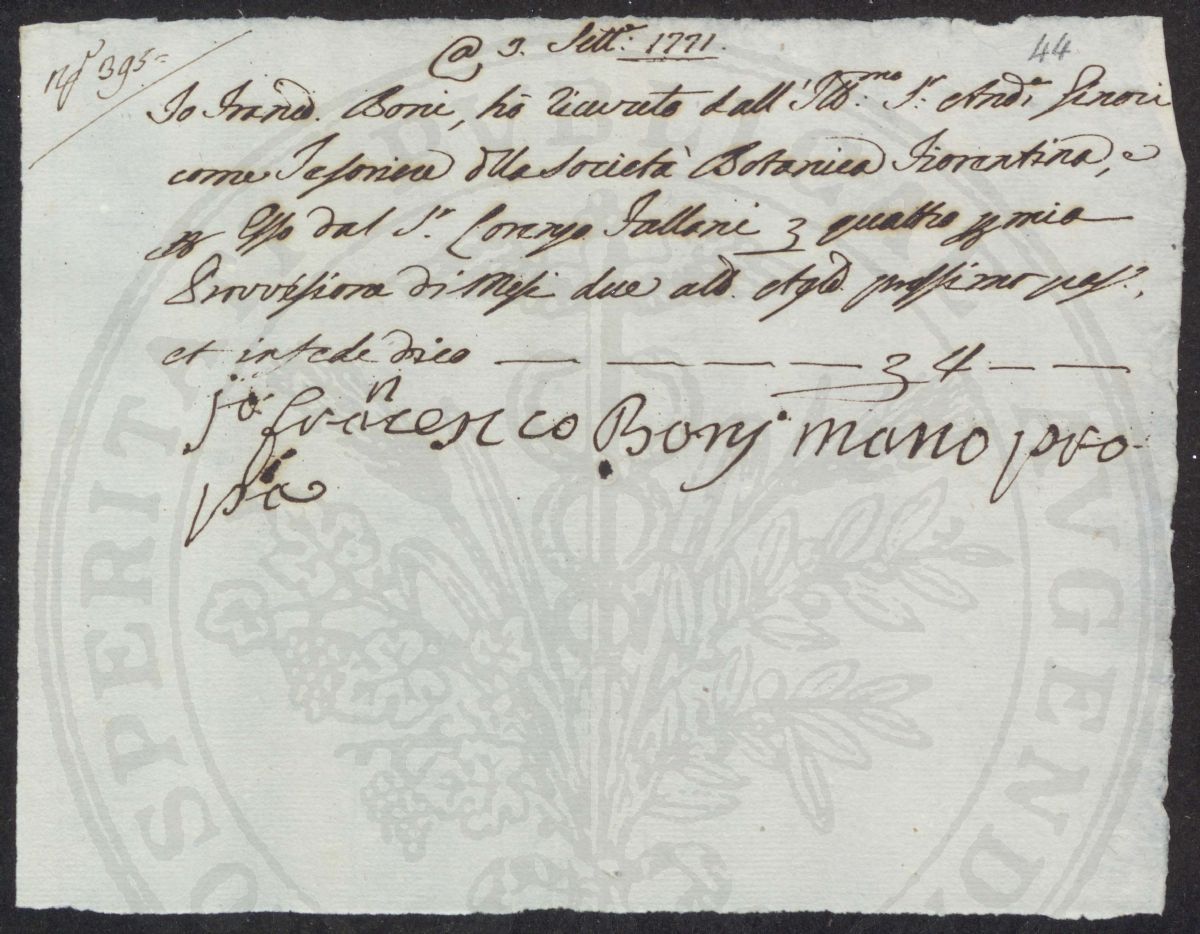 N.° 395
44
@ 3. Sett.e 1771.
Io Franc.o Boni, hò ricevuto dall'Ill.mo S.r And.a Ginori
come Tesoriere dlla Società Botanica Fiorentina, e
p Esso dal S.r Lorenzo Fallani quattro p mia
Provvisione di Mesi due a tt.o Ag.to prossimo pas.o,
et in fede dico — — — — — 4 — —
Io francesco Bonj mano pro
pia
PROSPERITATI PUBLICAE AUGENDAE